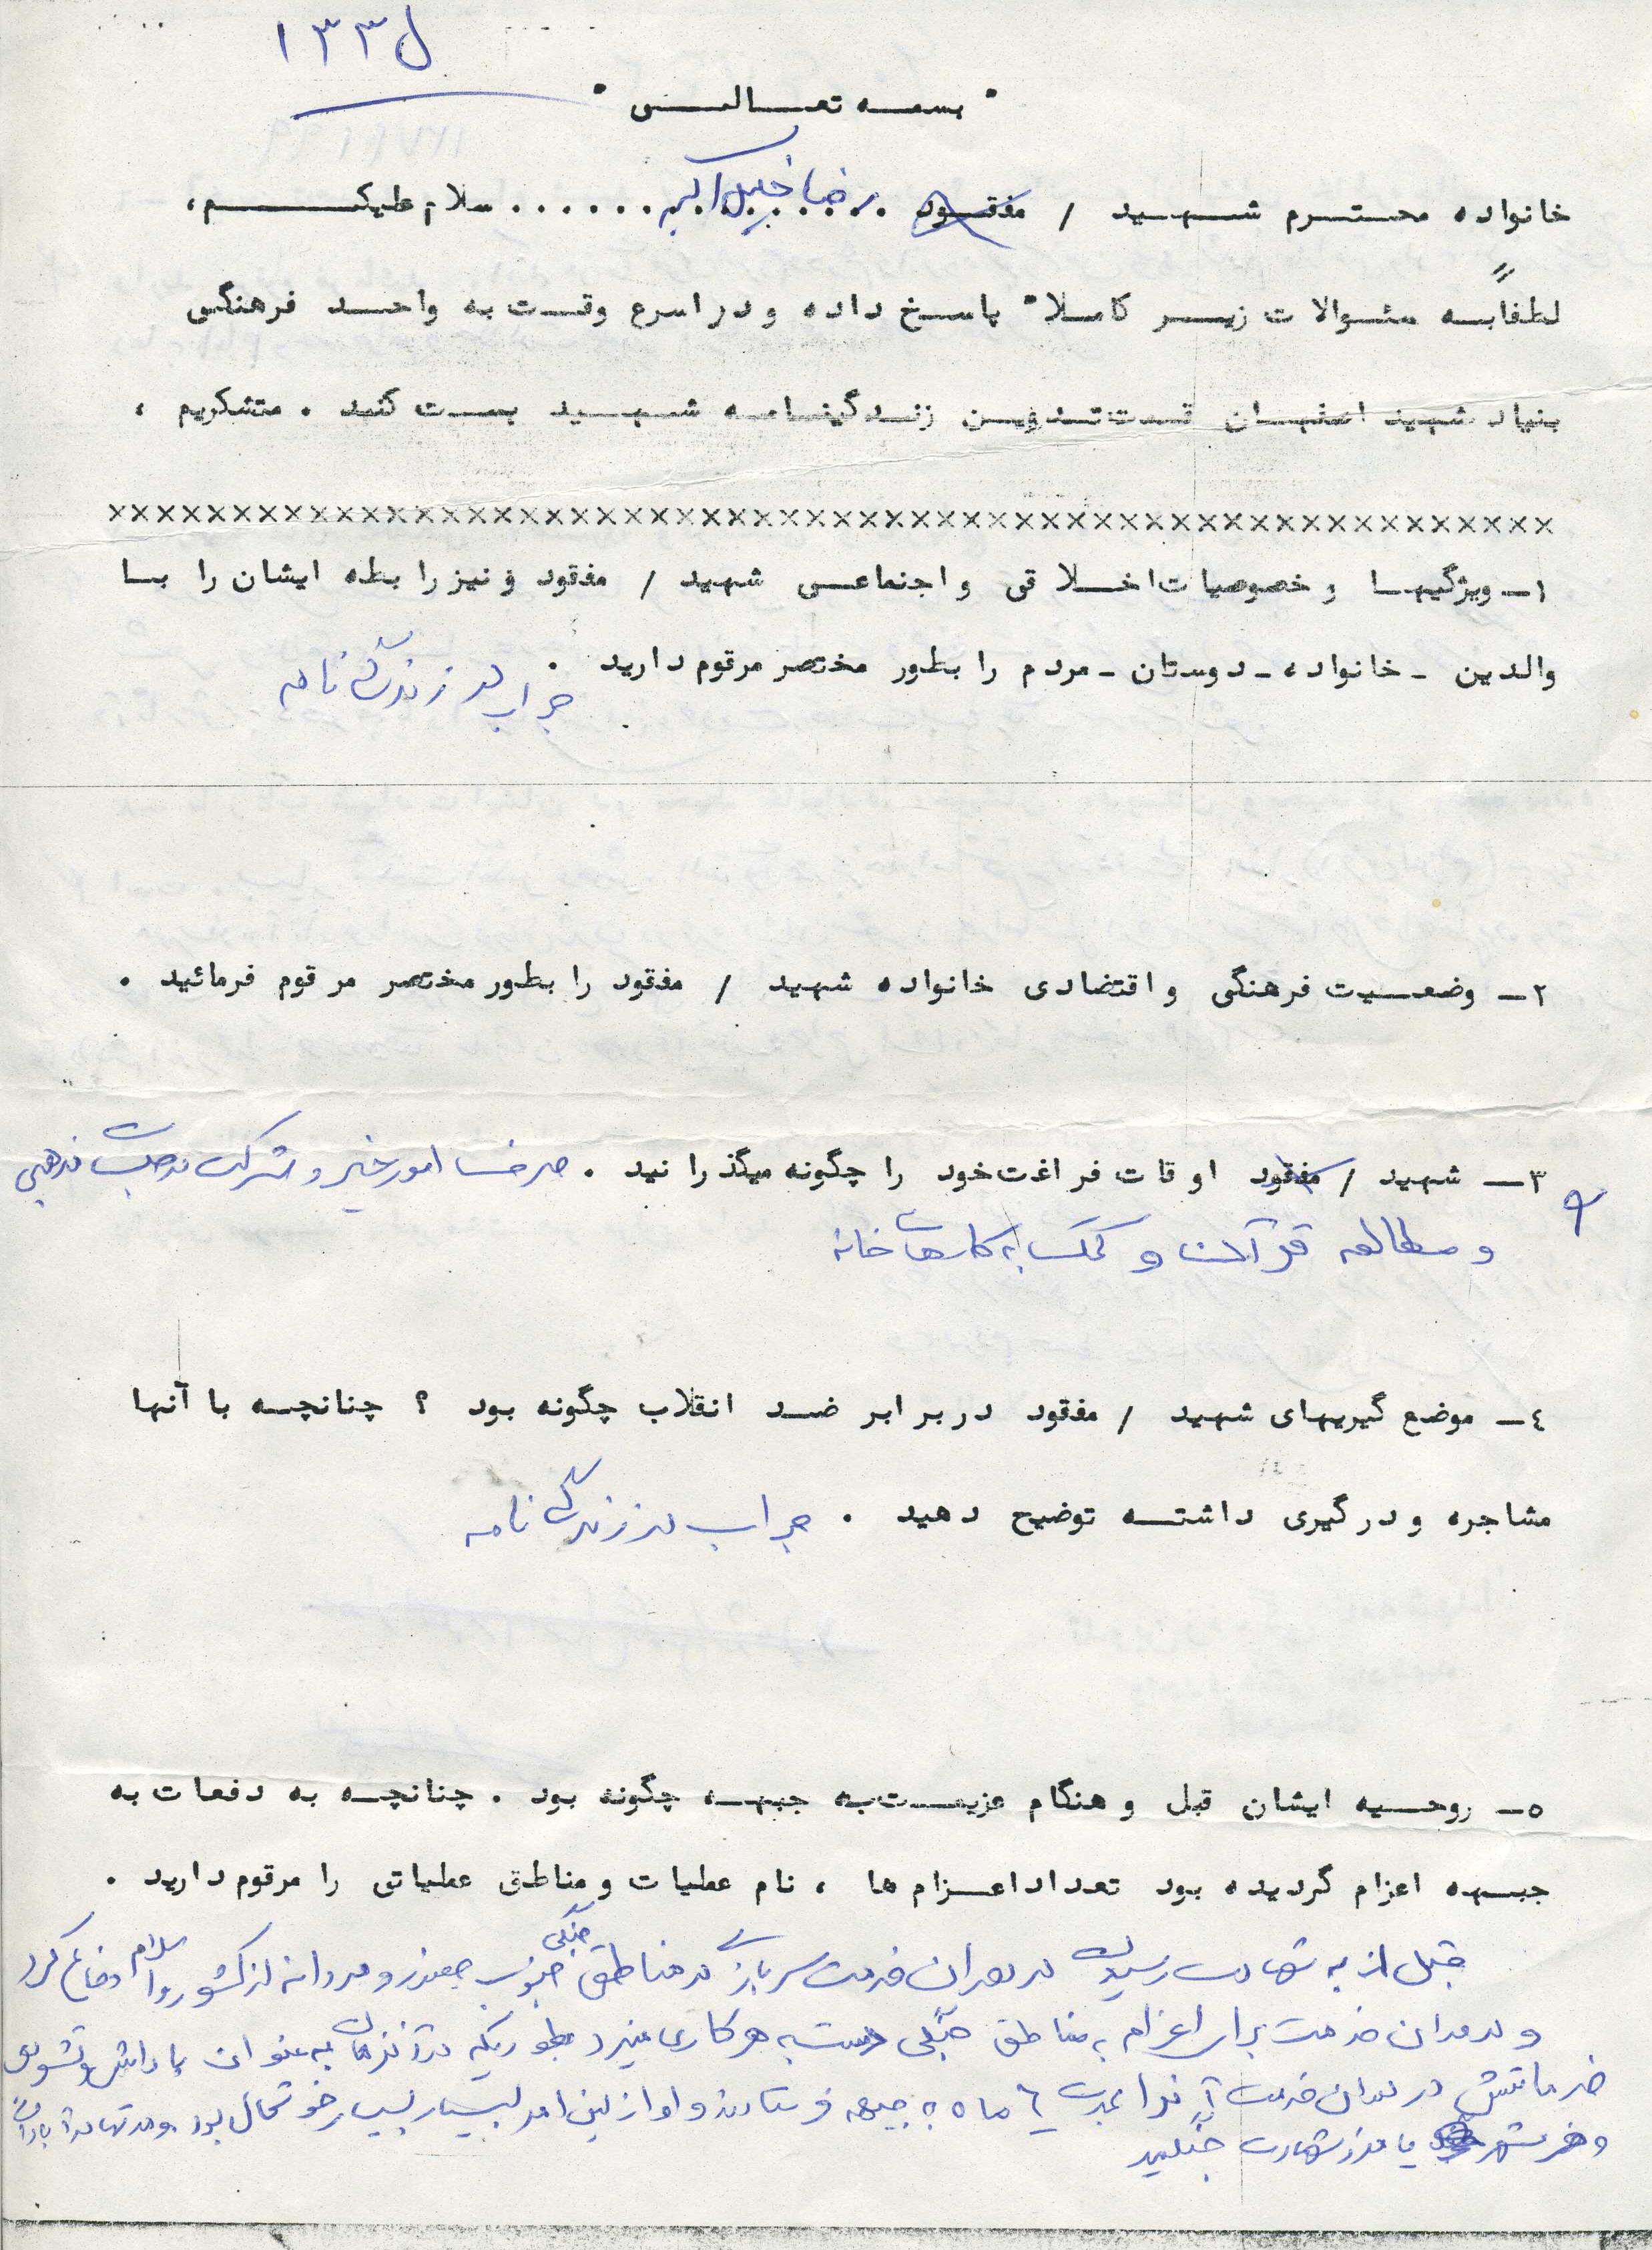 ۱۳۳ل
" بسمه تعالی "
خانواده محترم شهید / مفقود رضا خلیل اکبر ...... سلام علیکم،
لطفاً به سئوالات زیر کاملا" پاسخ داده و در اسرع وقت به واحد فرهنگی
بنیاد شهید اصفهان قسمت تدوین زندگینامه شهید پست کنید . متشکریم ،
××××××××××××××××××××××××××××××××××××××××××××××××××××××××
۱ـ ویژگیها و خصوصیات اخلاقی و اجتماعی شهید / مفقود و نیز رابطه ایشان را با
والدین ـ خانواده ـ دوستان ـ مردم را بطور مختصر مرقوم دارید . جواب در زندگی نامه
۲ـ وضعیت فرهنگی و اقتضادی خانواده شهید / مفقود را بطور مختصر مرقوم فرمائید .
۳ـ شهید / مفقود اوقات فراغت خود را چگونه میگذرانید . صرف امور خیر و شرکت در مذهبی
و مطالعه قرآن و کمک به کارهای خانه
٤ـ موضع گیریهای شهید / مفقود در برابر ضد انقلاب چگونه بود ؟ چنانچه با آنها
مشاجره و درگیری داشته توضیح دهید . جواب در زندگی نامه
۵ـ روحیه ایشان قبل و هنگام عزیمت به جبهه چگونه بود . چنانچه به دفعات به
جبهه اعزام گردیده بود تعداد اعزام ها ، نام عملیات و مناطق عملیاتی را مرقوم دارید .
قبل از به شهادت رسیدن در دوران خدمت سربازی در مناطق جنگی جنوب و مردانه از کشور و اسلام دفاع کرد
و در دوران خدمت برای اعزام به مناطق جنگی دست به هر کاری میزد بطوریکه در آن زمان به عنوان پاداش و تشویق
خدماتش در دوران خدمت او را بمدت ٦ ماه به جبهه فرستادند و او از این امر بسیار بسیار خوشحال بود و مدتها در آبادان
و خرمشهر تا مرز شهادت جنگید